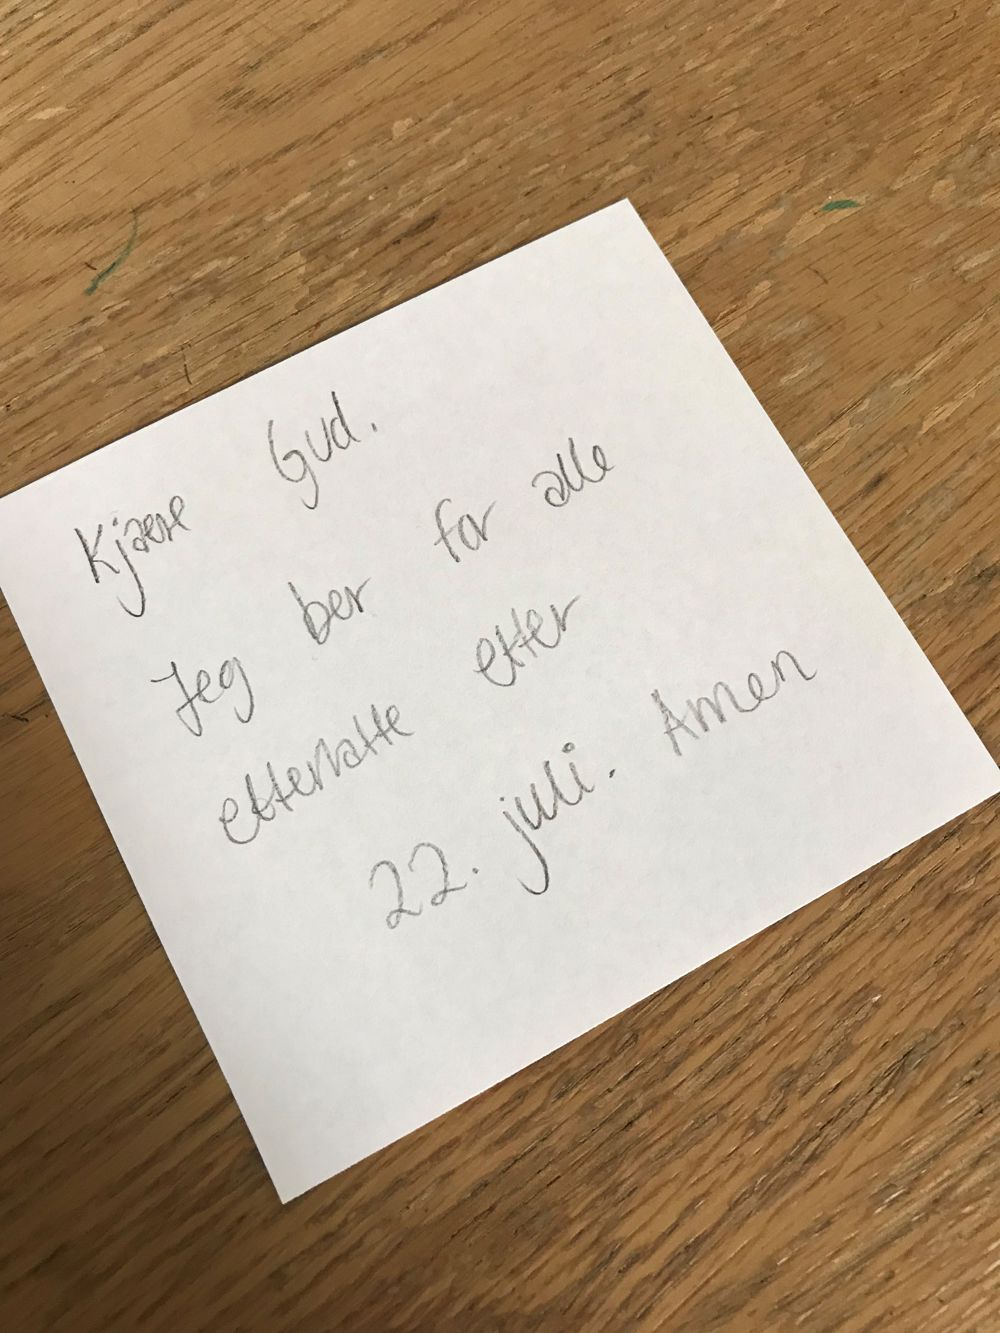 Kjære Gud.
Jeg ber for alle
etterlatte etter
22. juli. Amen